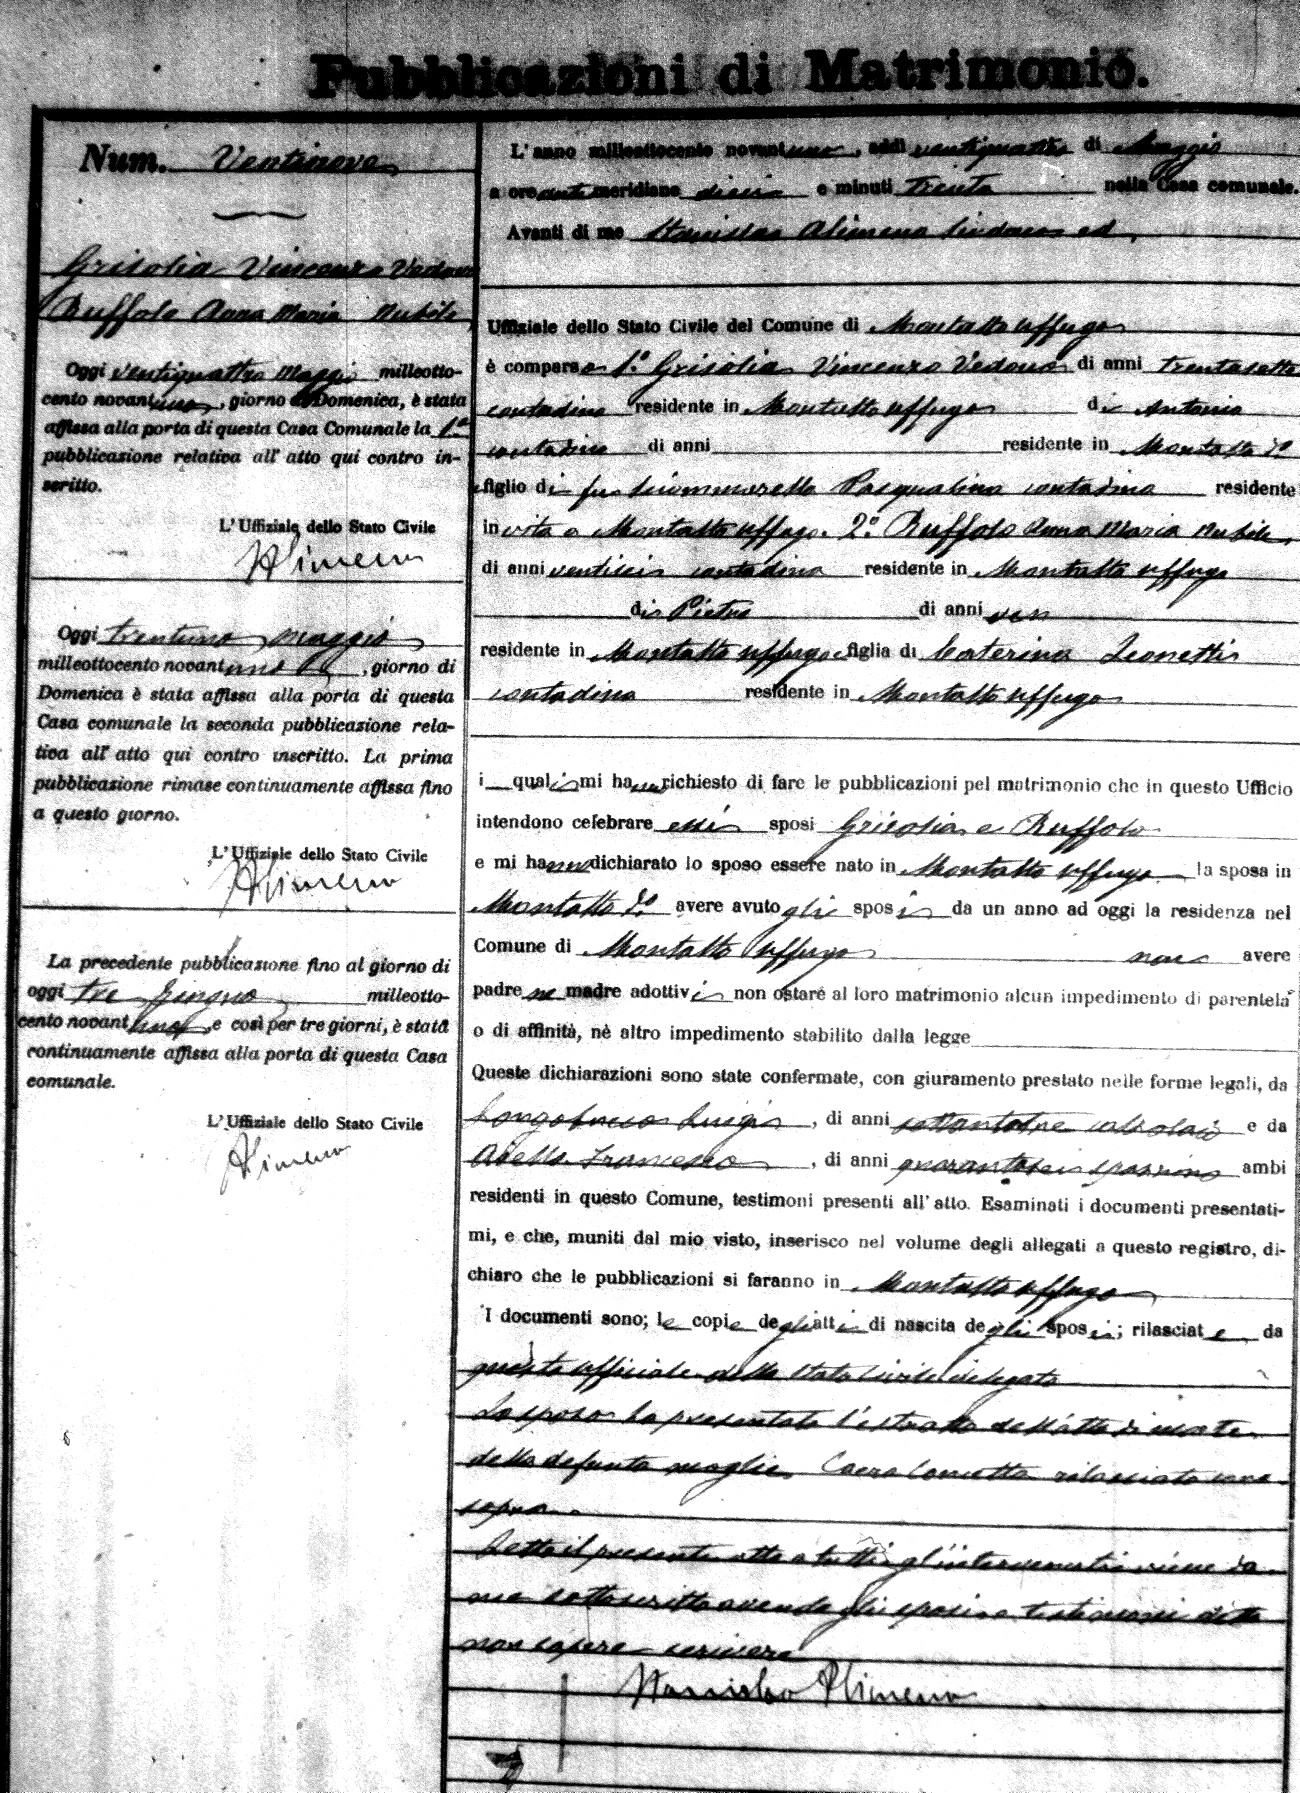 Pubblicazioni di Matrimonio.
Num. Ventinove
Grisolia Vincenzo Vedovo
Ruffolo Anna Maria Nubile
Oggi ventiquattro Maggio milleotto-
cento novantuno, giorno di Domenica, è stata
affissa alla porta di questa Casa Comunale la 1.a
pubblicazione relativa all' atto qui contro in-
scritto.
L' Uffiziale dello Stato Civile
Alimena
Oggi trentuno maggio
milleottocento novantuno, giorno di
Domenica è stata affissa alla porta di questa
Casa comunale la seconda pubblicazione rela-
tiva all' atto qui contro inscritto. La prima
pubblicazione rimase continuamente affissa fino
a questo giorno.
L' Uffiziale dello Stato Civile
Alimena
La precedente pubblicazione fino al giorno di
oggi tre Giugno milleotto-
cento novantuno, e così per tre giorni, è stata
continuamente affissa alla porta di questa Casa
comunale.
L' Uffiziale dello Stato Civile
Alimena
L' anno milleottocento novantuno, addì ventiquattro di Maggio
a ore antemeridiane dieci e minuti trenta nella Casa comunale.
Avanti di me Stanislao Alimena Sindaco ed
Uffiziale dello Stato Civile del Comune di Montalto Uffugo
è comparso 1.o Grisolia Vincenzo Vedovo di anni trentasette
contadino residente in Montalto Uffugo di Antonio
contadino di anni residente in Montalto
figlio di fu Pasqualina contadina residente
in vita a Montalto Uffugo. 2.o Ruffolo Anna Maria Nubile
di anni ventisei contadina residente in Montalto Uffugo
di Pietro di anni
residente in Montalto Uffugo figlia di Caterina Leonetti
contadina residente in Montalto Uffugo
i quali mi hanno richiesto di fare le pubblicazioni pel matrimonio che in questo Ufficio
intendono celebrare essi sposi Grisolia e Ruffolo
e mi hanno dichiarato lo sposo essere nato in Montalto Uffugo la sposa in
Montalto avere avuto gli sposi da un anno ad oggi la residenza nel
Comune di Montalto Uffugo non avere
padre ne madre adottivi non ostare al loro matrimonio alcun impedimento di parentela
o di affinità, nè altro impedimento stabilito dalla legge
Queste dichiarazioni sono state confermate, con giuramento prestato nelle forme legali, da
Longobucco Luigi, di anni calzolaio e da
Aiello Francesco, di anni quarantasei ambi
residenti in questo Comune, testimoni presenti all' atto. Esaminati i documenti presentati-
mi, e che, muniti dal mio visto, inserisco nel volume degli allegati a questo registro, di-
chiaro che le pubblicazioni si faranno in Montalto Uffugo
I documenti sono; le copie degli atti di nascita degli sposi; rilasciate da
questo ufficiale dello Stato Civile delegato
Lo sposo ha presentato l'estratto dell'atto di morte
della defunta moglie Concetta rilasciato come
sopra.
Letto il presente atto a tutti gl'intervenuti viene da
me sottoscritto avendo gli sposi e testimoni detto
non sapere scrivere
Stanislao Alimena